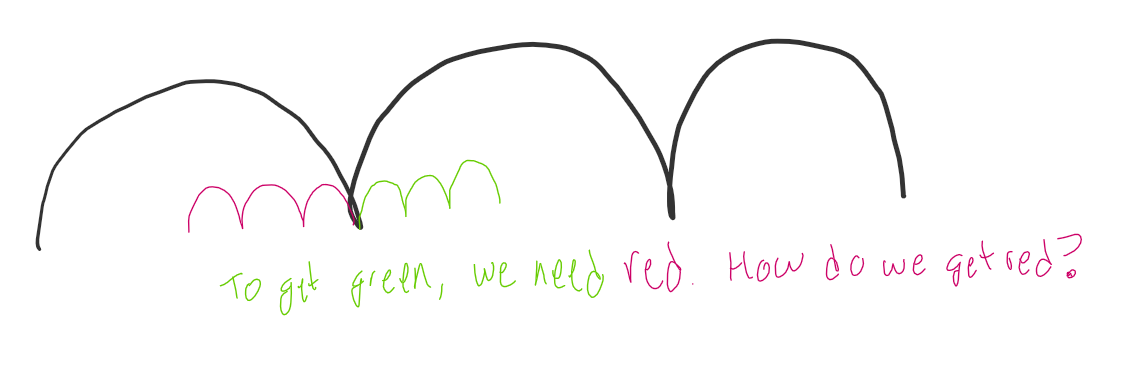 To get green, we need red. How do we get red?